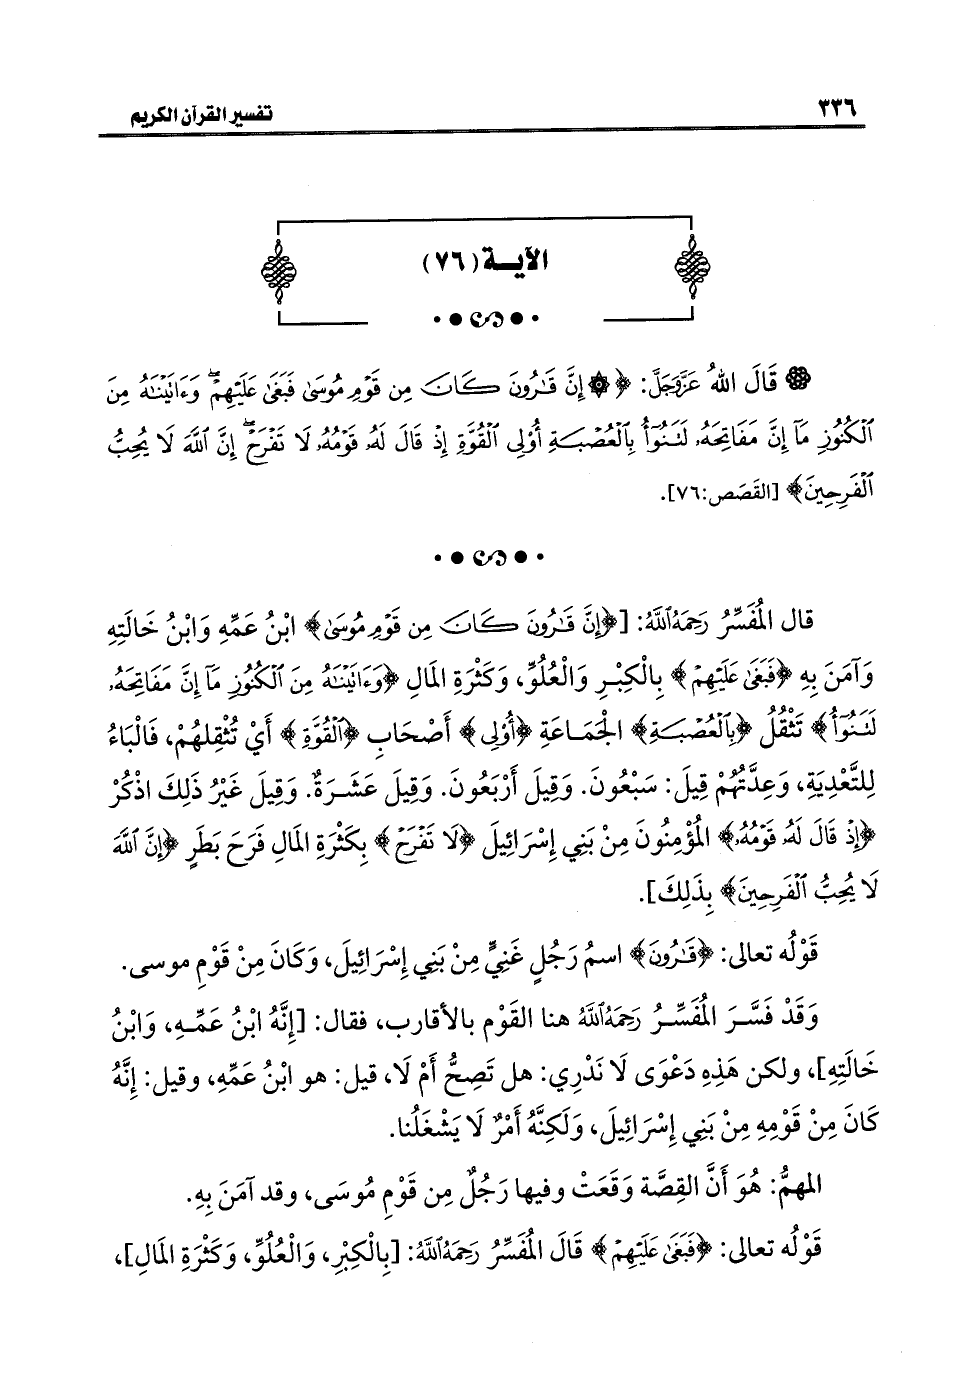 ٣٣٦ تفسير القرآن الكريم
الآيــة (٧٦)
قَالَ اللهُ عَزَّوَجَلَّ: ﴿ ۞ إِنَّ قَـٰرُونَ كَانَ مِن قَوْمِ مُوسَىٰ فَبَغَىٰ عَلَيْهِمْ ۖ وَءَاتَيْنَـٰهُ مِنَ
ٱلْكُنُوزِ مَآ إِنَّ مَفَاتِحَهُۥ لَتَنُوٓأُ بِٱلْعُصْبَةِ أُو۟لِى ٱلْقُوَّةِ إِذْ قَالَ لَهُۥ قَوْمُهُۥ لَا تَفْرَحْ ۖ إِنَّ ٱللَّهَ لَا يُحِبُّ
ٱلْفَرِحِينَ﴾ [القَصَص:٧٦].
قال الْمُفَسِّرُ رَحِمَهُ ٱللَّهُ: [﴿إِنَّ قَـٰرُونَ كَانَ مِن قَوْمِ مُوسَىٰ﴾ ابْنُ عَمِّهِ وَابْنُ خَالَتِهِ
وَآمَنَ بِهِ ﴿فَبَغَىٰ عَلَيْهِمْ﴾ بِالْكِبْرِ وَالْعُلُوِّ، وَكَثْرَةِ المَالِ ﴿وَءَاتَيْنَـٰهُ مِنَ ٱلْكُنُوزِ مَآ إِنَّ مَفَاتِحَهُۥ
لَتَنُوٓأُ﴾ تَثْقُلُ ﴿بِٱلْعُصْبَةِ﴾ الْجَمَاعَةِ ﴿أُو۟لِى﴾ أَصْحَابِ ﴿ٱلْقُوَّةِ﴾ أَيْ تُثْقِلهُمْ، فَالْبَاءُ
لِلتَّعْدِيَةِ، وَعِدَّتُهُمْ قِيلَ: سَبْعُونَ. وَقِيلَ أَرْبَعُونَ. وَقِيلَ عَشَرَةٌ. وَقِيلَ غَيْرُ ذَلِكَ اذْكُرْ
﴿إِذْ قَالَ لَهُۥ قَوْمُهُۥ﴾ الْمُؤْمِنُونَ مِنْ بَنِي إِسْرَائِيلَ ﴿لَا تَفْرَحْ﴾ بِكَثْرَةِ المَالِ فَرَحَ بَطَرٍ ﴿إِنَّ ٱللَّهَ
لَا يُحِبُّ ٱلْفَرِحِينَ﴾ بِذَلِكَ].
قَوْلُه تعالى: ﴿قَـٰرُونَ﴾ اسمُ رَجُلٍ غَنِيٍّ مِنْ بَنِي إِسْرَائِيلَ، وَكَانَ مِنْ قَوْمِ موسى.
وَقَدْ فَسَّرَ الْمُفَسِّرُ رَحِمَهُ ٱللَّهُ هنا القَوْم بالأقارب، فقال: [إِنَّهُ ابْنُ عَمِّهِ، وَابْنُ
خَالَتِهِ]، ولكن هَذِهِ دَعْوَى لَا نَدْرِي: هل تَصِحُّ أَمْ لَا، قيل: هو ابْنُ عَمِّهِ، وقيل: إِنَّهُ
كَانَ مِنْ قَوْمِهِ مِنْ بَنِي إِسْرَائِيلَ، وَلَكِنَّهُ أَمْرٌ لَا يَشْغَلُنا.
المهمُّ: هُوَ أَنَّ القِصَّة وَقَعَتْ وفيها رَجُلٌ مِن قَوْمِ مُوسَى، وقد آمَنَ بِهِ.
قَوْلُه تعالى: ﴿فَبَغَىٰ عَلَيْهِمْ﴾ قَالَ الْمُفَسِّرُ رَحِمَهُ ٱللَّهُ: [بِالْكِبْرِ، وَالْعُلُوِّ، وَكَثْرَةِ المَالِ]،